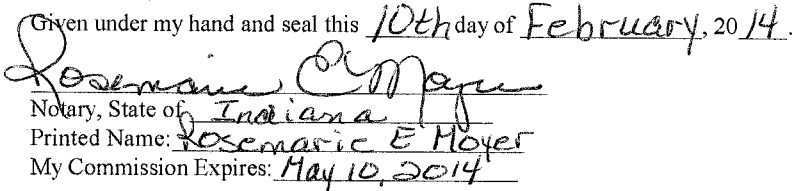 Given under my hand and seal this 10th day of February, 2014.
Rosemarie E Moyer
Notary, State of Indiana
Printed Name: Rosemarie E Moyer
My Commission Expires: May 10, 2014